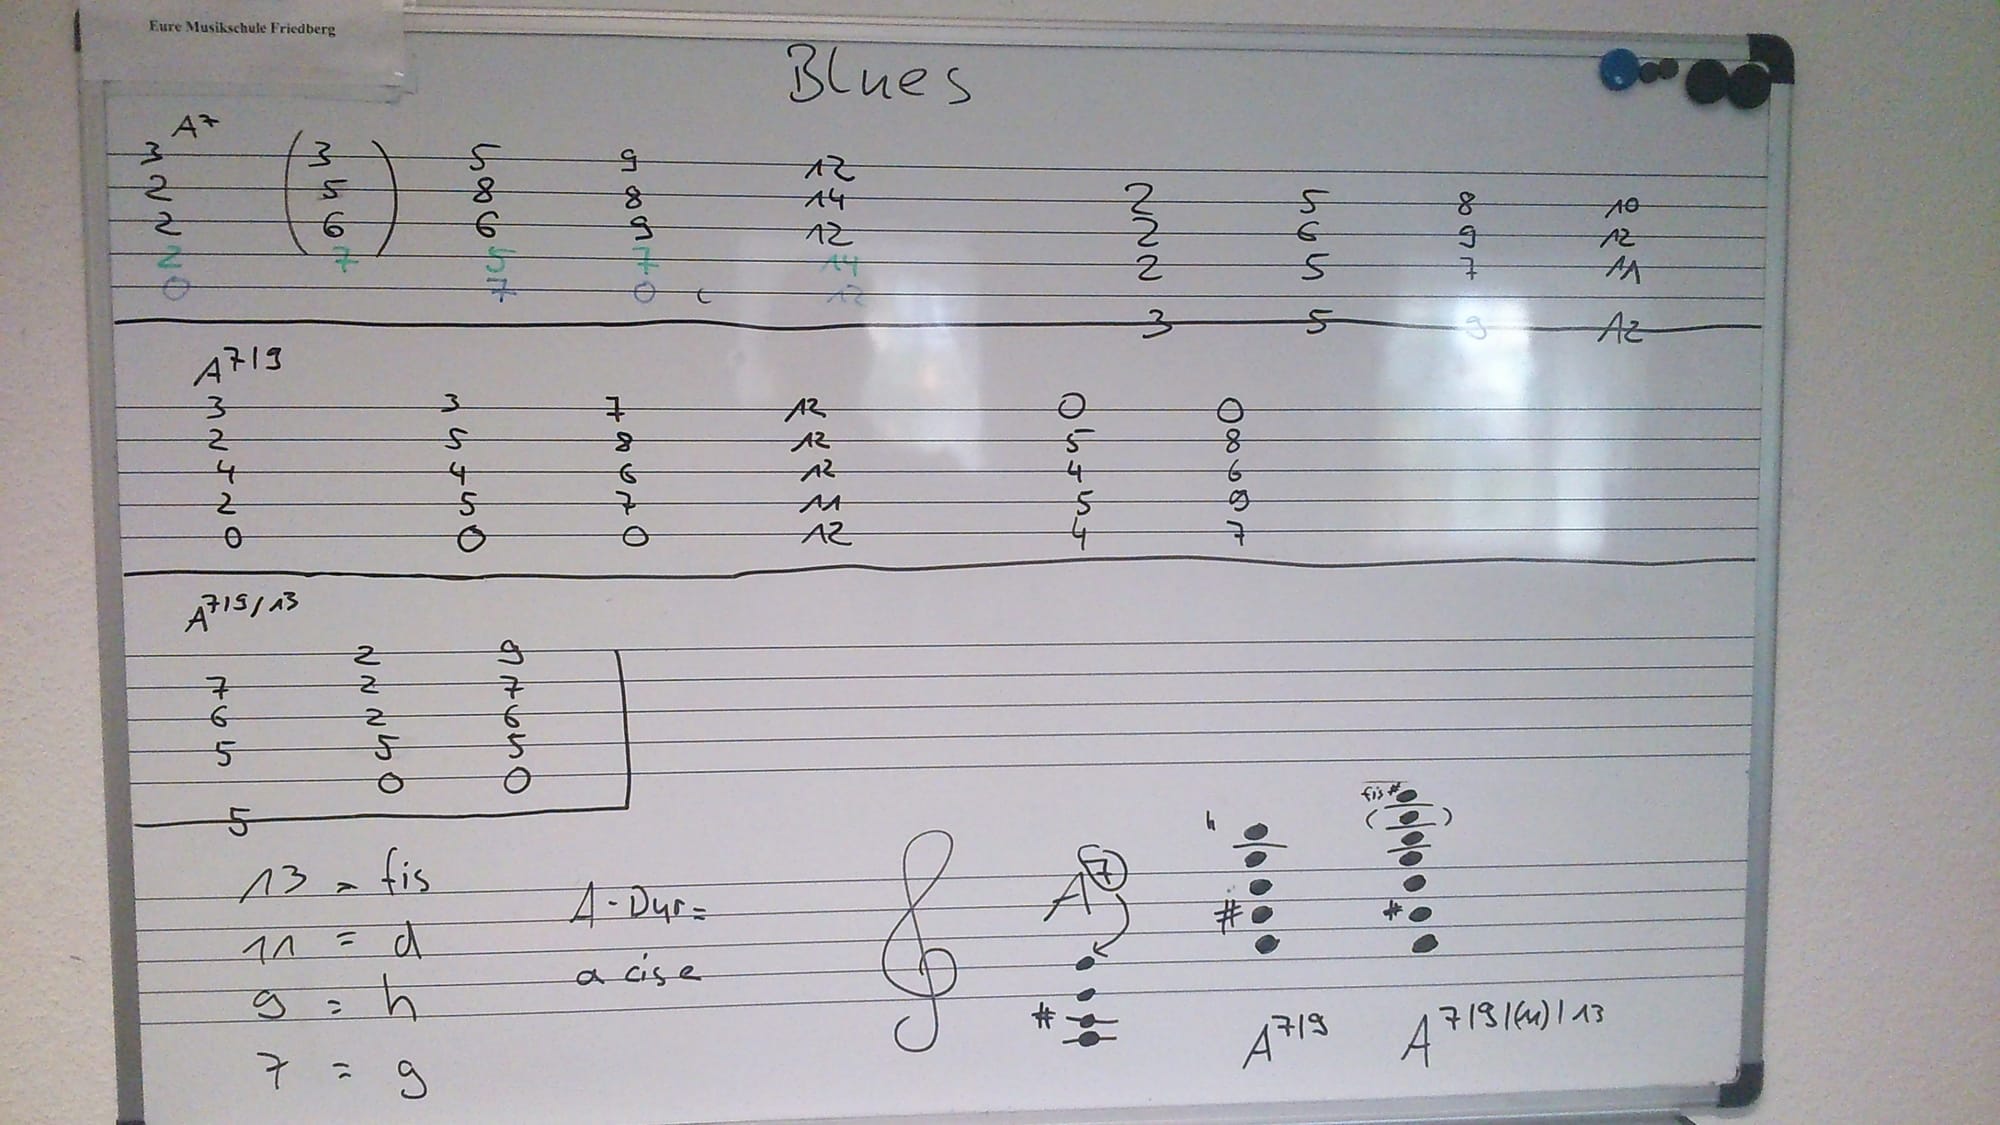 Eure Musikschule Friedberg
Blues
A7
3 (3) 5 9 12
2 5 8 8 14 2 5 8 10
2 6 6 9 12 2 6 9 12
2 7 5 7 14 2 5 7 11
0 7 0 c 12
3 5 9 12
A7/9
3 3 7 12 0 0
2 5 8 12 5 8
4 4 6 12 4 6
2 5 7 11 5 9
0 0 0 12 4 7
A7/9/13
2 9
7 2 7
6 2 6
5 5 5
0 0
5
13 = fis
11 = d
9 = h
7 = g
A-Dur =
a cis e
A7
#
h
#
A7/9
fis #
( )
#
A7/9/(11)/13